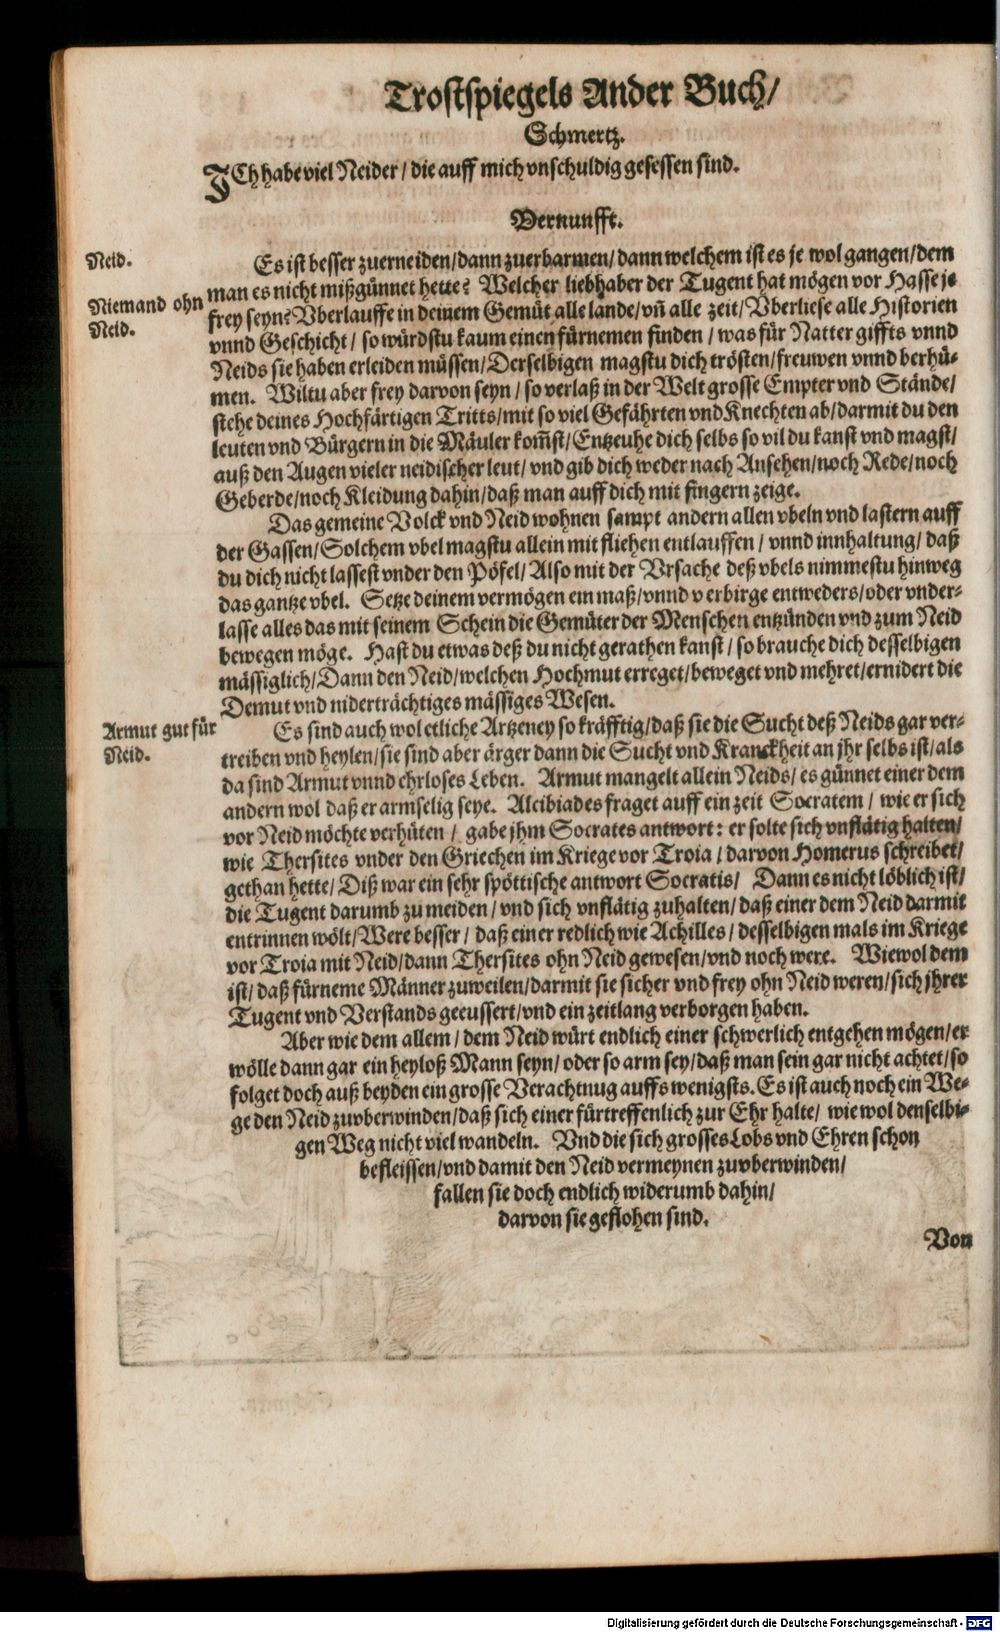 Trostspiegels Ander Buch/
Schmertz.
ICh habe viel Neider / die auff mich vnschuldig gesessen sind.
Vernunfft.
Neid.
Es ist besser zuerneiden/dann zuerbarmen/dann welchem ist es je wol gangen/dem
man es nicht mißgünnet hette? Welcher liebhaber der Tugent hat mögen vor Hasse je
Niemand ohn
Neid.
frey seyn? Vberlauffe in deinem Gemüt alle lande/vñ alle zeit/ Vberliese alle Historien
vnnd Geschicht / so würdstu kaum einen fürnemen finden / was für Natter giffts vnnd
Neids sie haben erleiden müssen/ Derselbigen magstu dich trösten/freuwen vnnd berhü-
men. Wiltu aber frey darvon seyn / so verlaß in der Welt grosse Empter vnd Stände/
stehe deines Hochfärtigen Tritts/mit so viel Gefährten vnd Knechten ab/darmit du den
leuten vnd Bürgern in die Mäuler kom̃st/ Entzeuhe dich selbs so vil du kanst vnd magst/
auß den Augen vieler neidischer leut/ vnd gib dich weder nach Ansehen/noch Rede/noch
Geberde/noch Kleidung dahin/daß man auff dich mit fingern zeige.
Das gemeine Volck vnd Neid wohnen sampt andern allen vbeln vnd lastern auff
der Gassen/ Solchem vbel magstu allein mit fliehen entlauffen / vnnd innhaltung/ daß
du dich nicht lassest vnder den Pöfel/ Also mit der Vrsache deß vbels nimmestu hinweg
das gantze vbel. Setze deinem vermögen ein maß/vnnd verbirge entweders/oder vnder-
lasse alles das mit seinem Schein die Gemüter der Menschen entzünden vnd zum Neid
bewegen möge. Hast du etwas deß du nicht gerathen kanst / so brauche dich desselbigen
mässiglich/ Dann den Neid/welchen Hochmut erreget/beweget vnd mehret/ernidert die
Demut vnd niderträchtiges mässiges Wesen.
Armut gut für
Neid.
Es sind auch wol etliche Artzeney so kräfftig/daß sie die Sucht deß Neids gar ver-
treiben vnd heylen/sie sind aber ärger dann die Sucht vnd Kranckheit an jhr selbs ist/als
da sind Armut vnnd ehrloses Leben. Armut mangelt allein Neids/ es günnet einer dem
andern wol daß er armselig seye. Alcibiades fraget auff ein zeit Socratem / wie er sich
vor Neid möchte verhüten / gabe jhm Socrates antwort: er solte sich vnflätig halten/
wie Thersites vnder den Griechen im Kriege vor Troia / darvon Homerus schreibet/
gethan hette/ Diß war ein sehr spöttische antwort Socratis/ Dann es nicht löblich ist/
die Tugent darumb zu meiden / vnd sich vnflätig zuhalten/ daß einer dem Neid darmit
entrinnen wölt/ Were besser / daß einer redlich wie Achilles / desselbigen mals im Kriege
vor Troia mit Neid/dann Thersites ohn Neid gewesen/vnd noch were. Wiewol dem
ist/ daß fürneme Männer zuweilen/darmit sie sicher vnd frey ohn Neid weren/sich jhrer
Tugent vnd Verstands geeussert/vnd ein zeitlang verborgen haben.
Aber wie dem allem / dem Neid würt endlich einer schwerlich entgehen mögen/er
wölle dann gar ein heyloß Mann seyn/ oder so arm sey/daß man sein gar nicht achtet/so
folget doch auß beyden ein grosse Verachtnug auffs wenigsts. Es ist auch noch ein We-
ge den Neid zuvberwinden/daß sich einer fürtreffenlich zur Ehr halte/ wie wol denselbi-
gen Weg nicht viel wandeln. Vnd die sich grosses Lobs vnd Ehren schon
befleissen/vnd damit den Neid vermeynen zuvberwinden/
fallen sie doch endlich widerumb dahin/
darvon sie geflohen sind.
Von
Digitalisierung gefördert durch die Deutsche Forschungsgemeinschaft - DFG